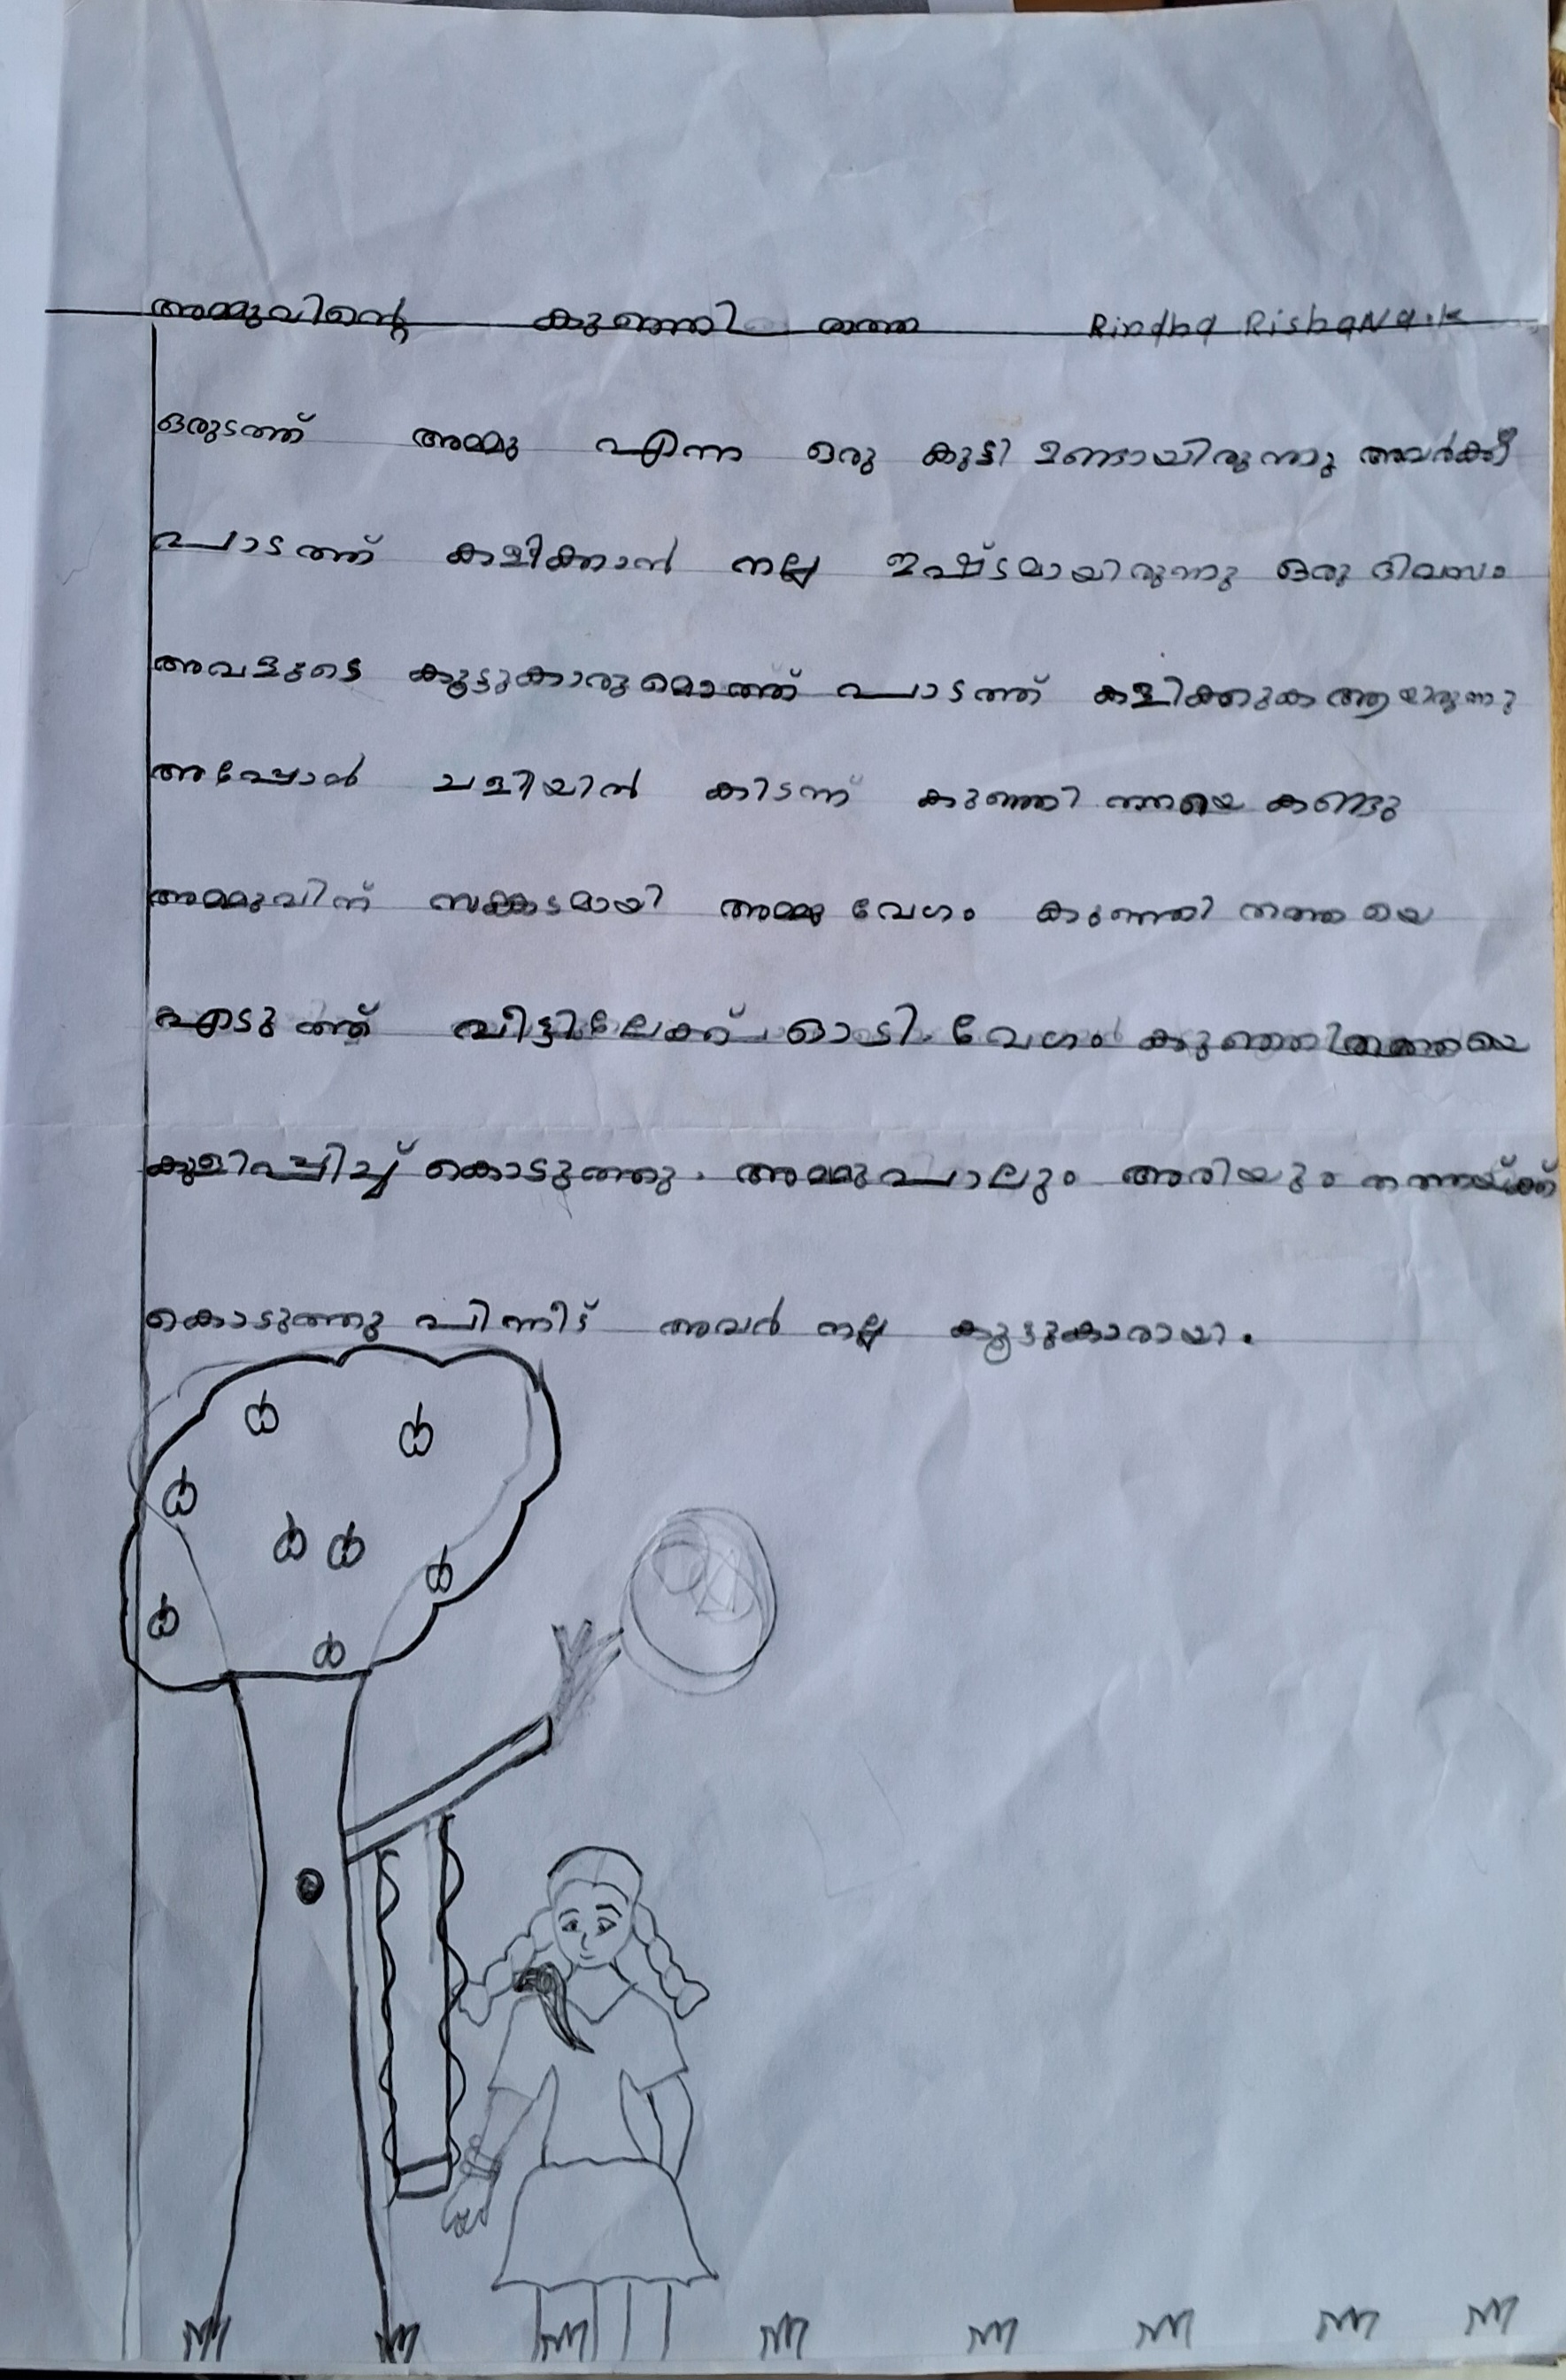 അമ്മുവിന്റെ കുഞ്ഞി തത്ത Rindha Risha Naik
ഒരുടത്ത് അമ്മു എന്ന ഒരു കുട്ടി ഉണ്ടായിരുന്നു അവൾക്ക്
പാടത്ത് കളിക്കാൻ നല്ല ഇഷ്ടമായിരുന്നു ഒരു ദിവസം
അവളുടെ കൂട്ടുകാരുമൊത്ത് പാടത്ത് കളിക്കുക ആയിരുന്നു
അപ്പോൾ ചളിയിൽ കിടന്ന് കുഞ്ഞി തത്തയെ കണ്ടു
അമ്മുവിന് സങ്കടമായി അമ്മു വേഗം കുഞ്ഞി തത്ത യെ
എടുത്ത് വീട്ടിലേക്ക് ഓടി. വേഗം കുഞ്ഞിതത്തയെ
കുളിപ്പിച്ച് കൊടുത്തു. അമ്മു പാലും അരിയും തത്തയ്ക്ക്
കൊടുത്തു പിന്നീട് അവർ നല്ല കൂട്ടുകാരായി.